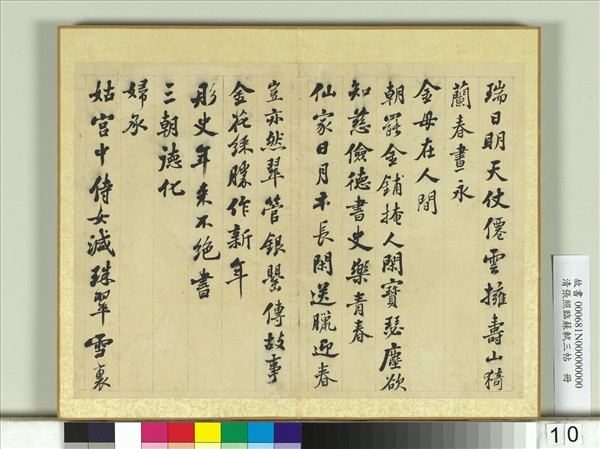 瑞日明天仗僊雲擁壽山猗
蘭春晝永
金母在人間
朝罷金鋪掩人閑寶瑟塵欲
知慈儉德書史樂青春
仙家日月本長閑送臘迎春
豈亦然翠管銀罌傳故事
金花綵勝作新年
彤史年來不絕書
三朝德化
婦承
姑宮中侍女減珠翠雪裏
故書000681N000000000
清張照臨蘇軾三帖 冊
10